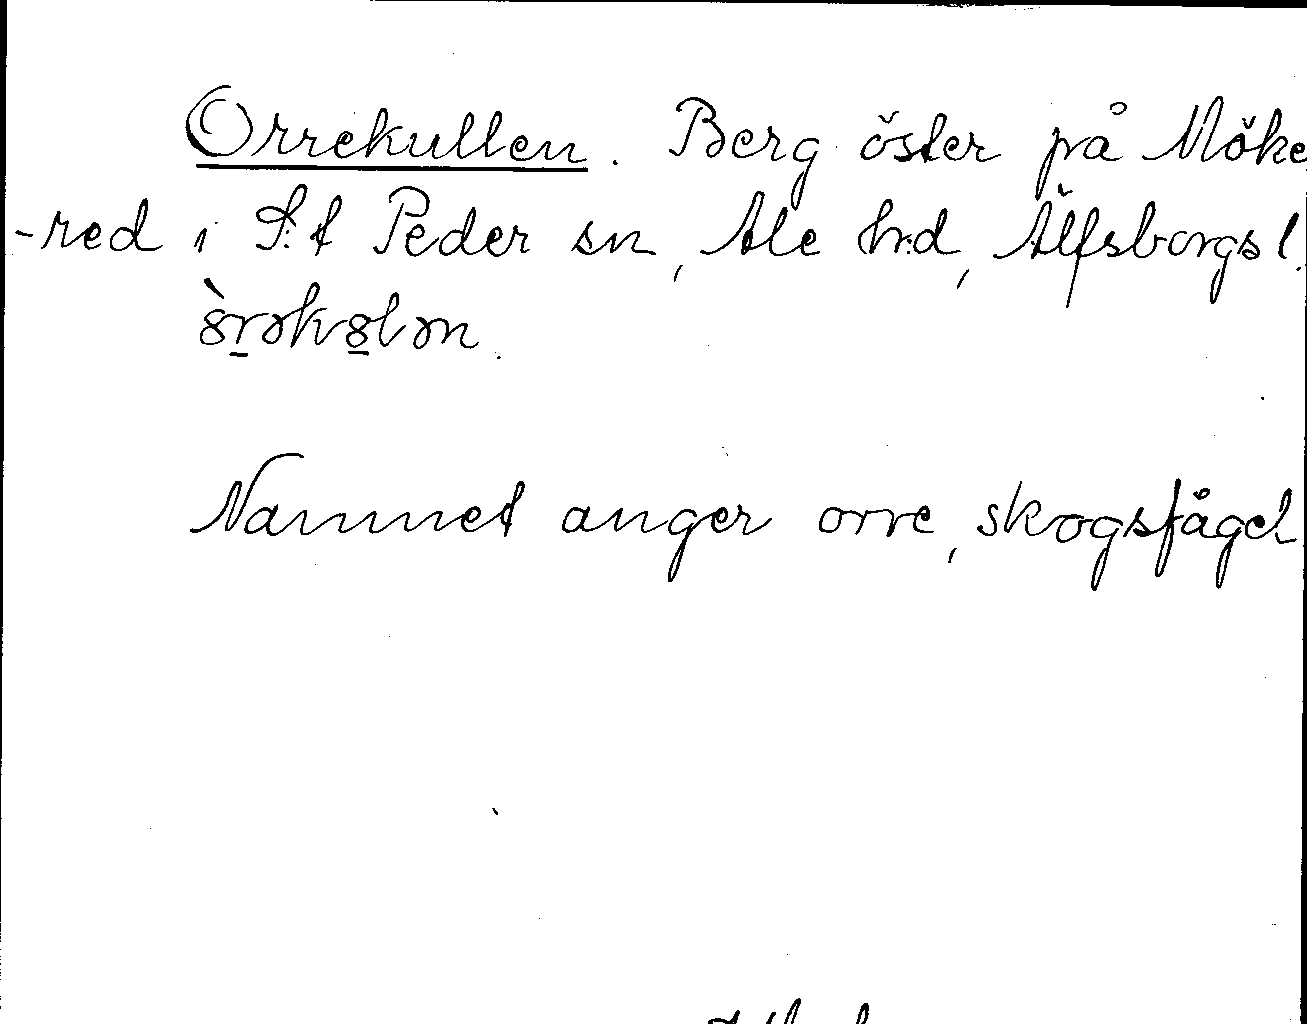 Orrekullen. Berg öster på Möke
-red i S:t Peder sn, Ale hd, Älfsborgs l.
Namnet anger orre, skogsfågel